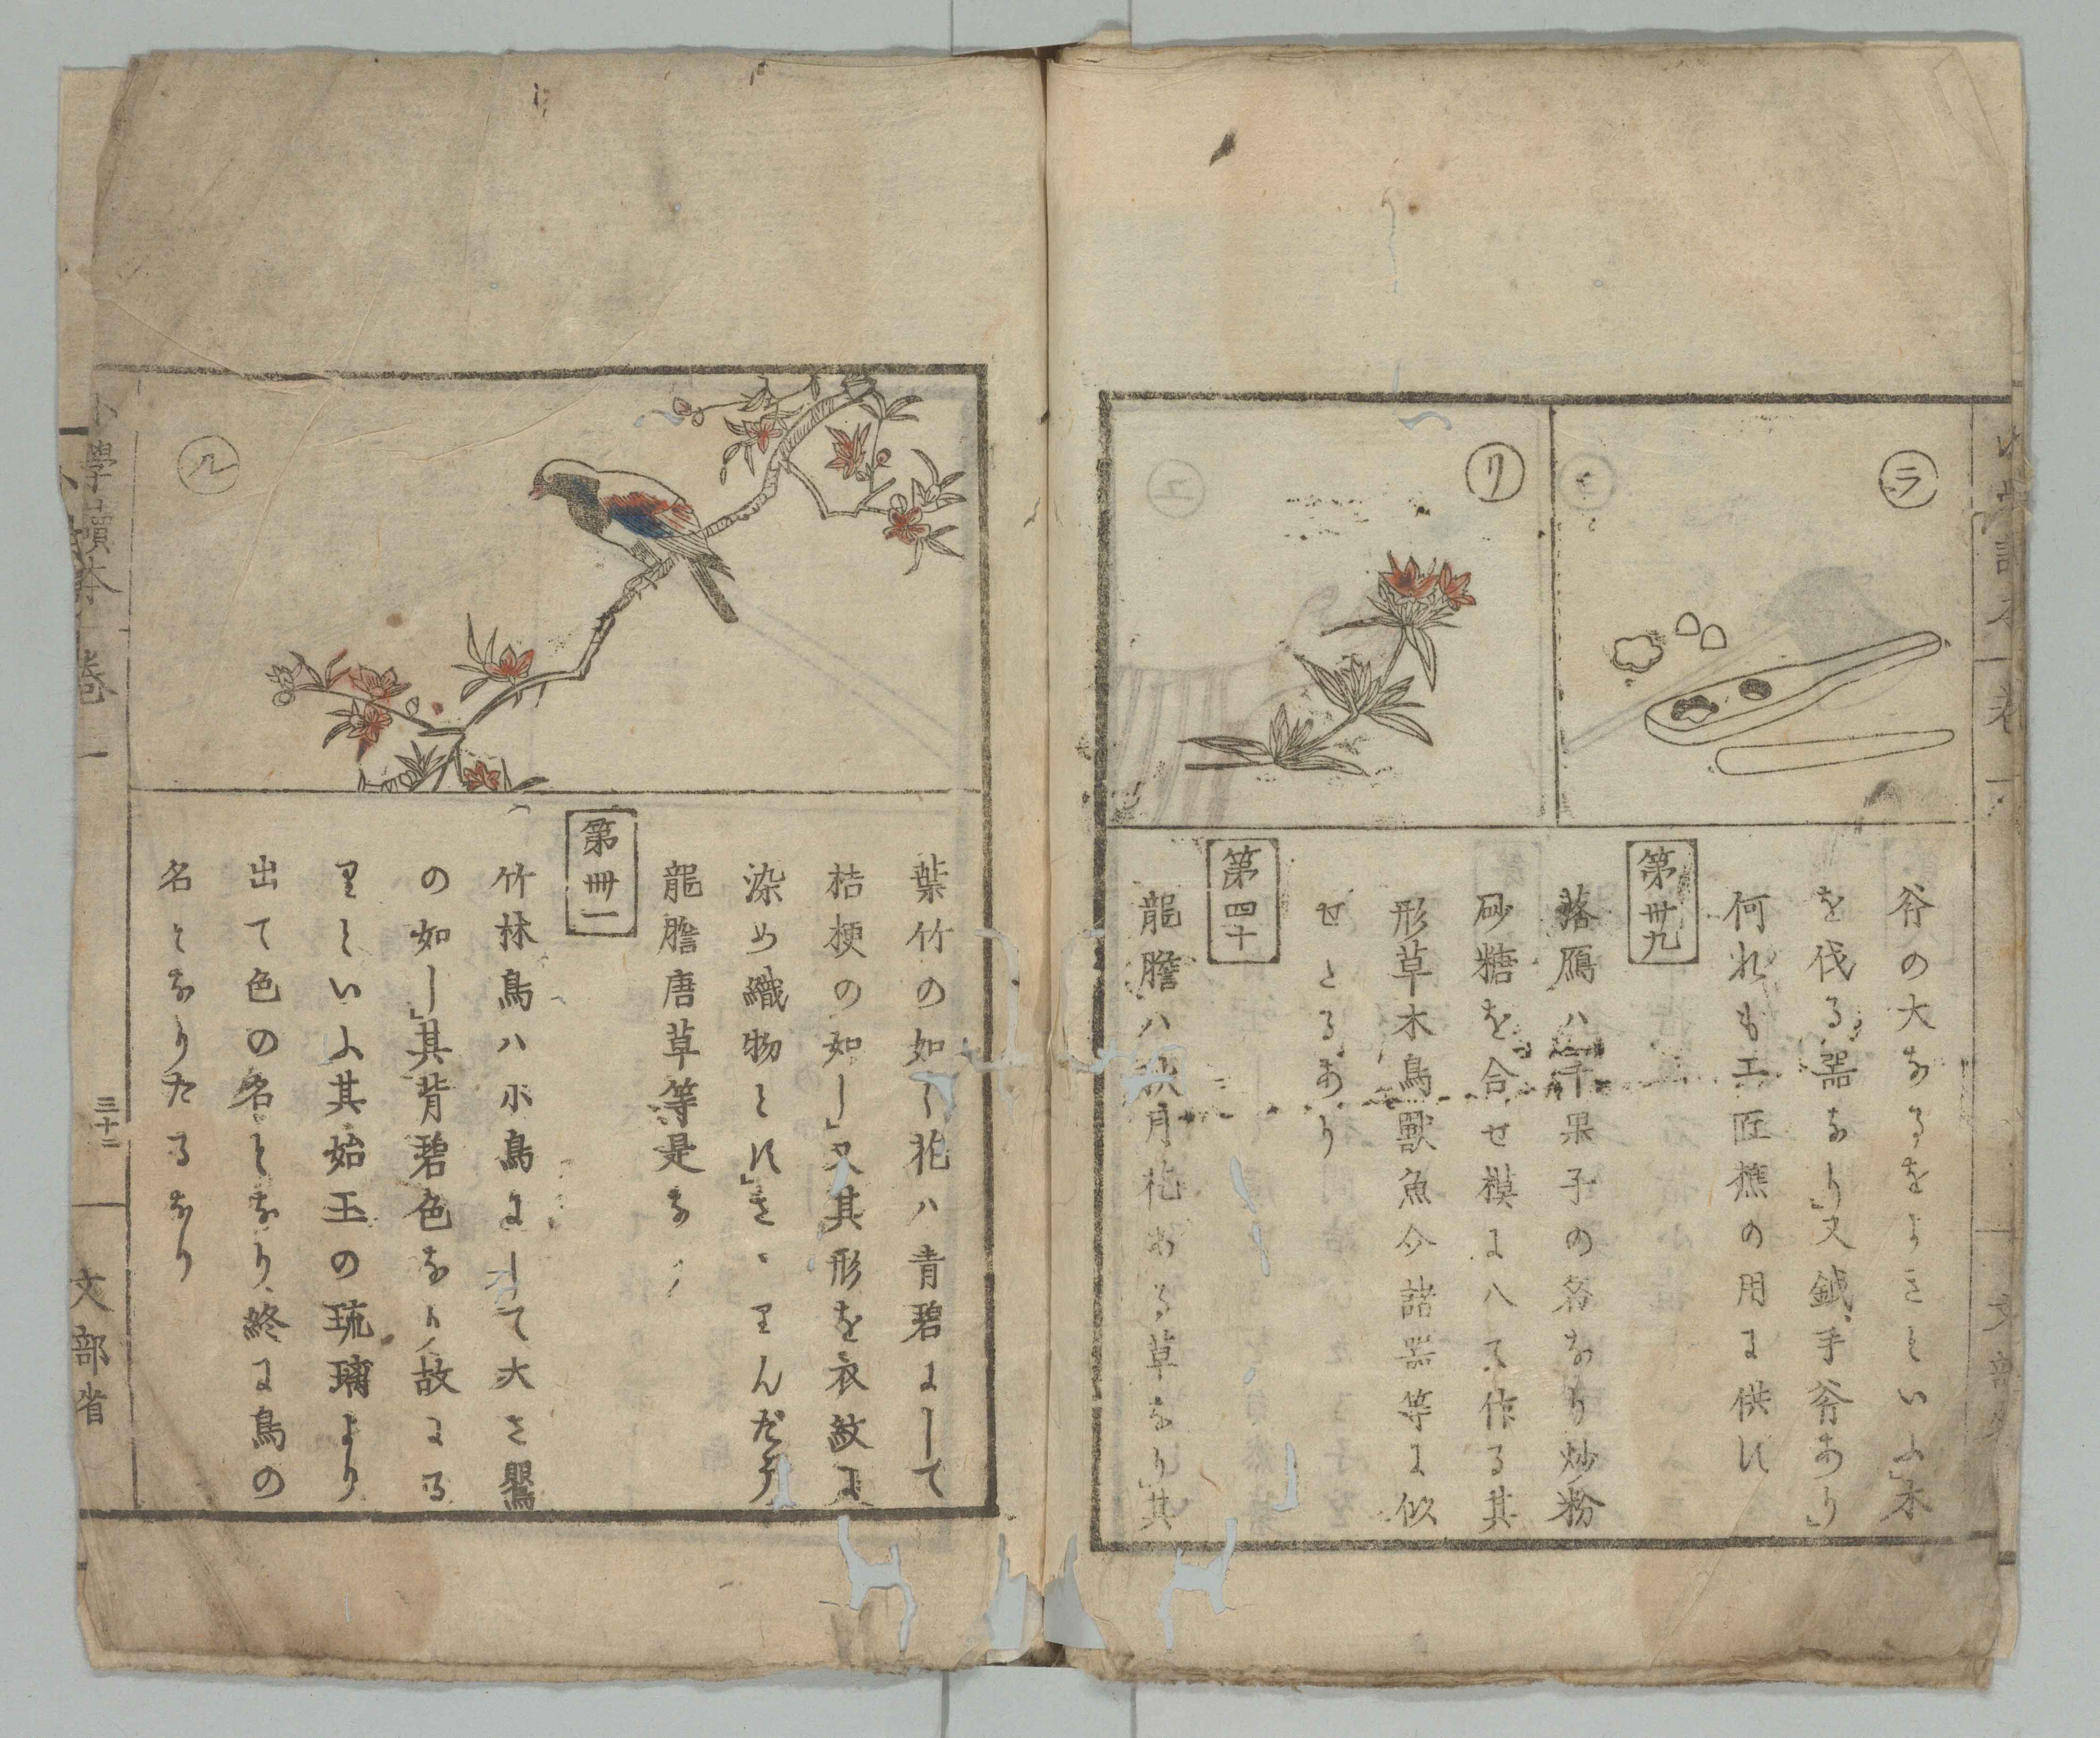 ラ
リ
斧の大なるをよきといふ」木
を伐る器なり」又鉞、手斧あり」
何れも工匠樵の用に供に
第卅九
落鴈ハ干果子の名なり炒粉
砂糖を合せ模に入て作る其
形草木鳥獸魚介諸器等に似
せとるあり
第四十
龍膽ハ秋月花ある草なり」其
ル
葉竹の如く花ハ青碧にして
桔梗の如し」又其形を衣紋に
染め織物とに」さゝりんだう
龍膽唐草等是な
第卌一
竹林鳥ハ小鳥にして大さ
の如し」其背碧色なり故にる
りといふ其始玉の琉璃より
出て色の名となり、終に鳥の
名となりたるなり
小學讀本 卷一
三十二
文部省